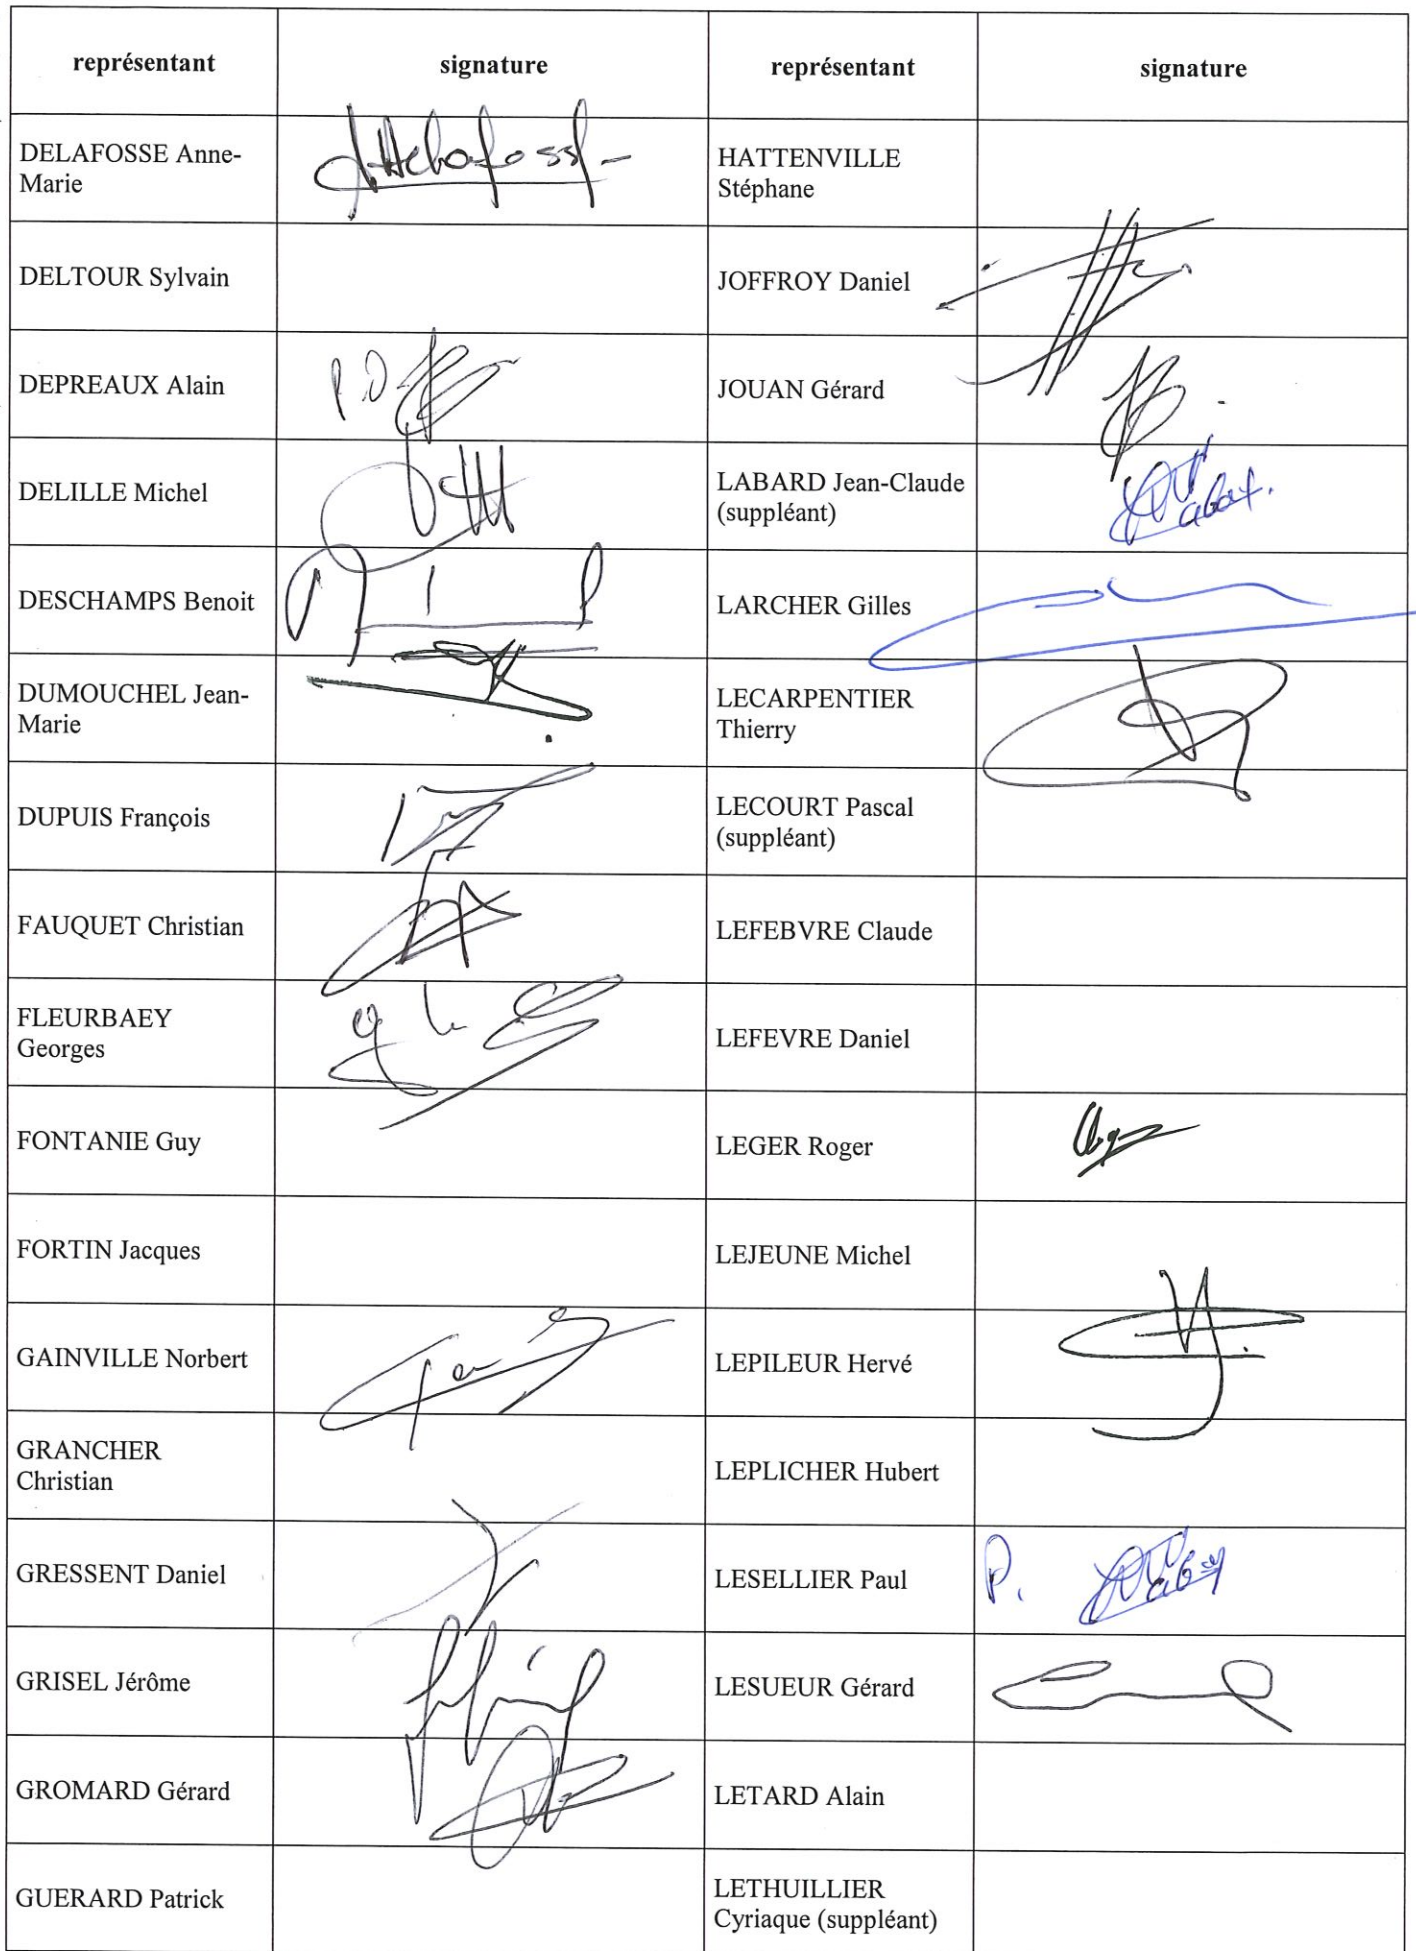 représentant signature représentant signature
DELAFOSSE Anne-
Marie
HATTENVILLE
Stéphane
DELTOUR Sylvain
JOFFROY Daniel
DEPREAUX Alain
JOUAN Gérard
DELILLE Michel
LABARD Jean-Claude
(suppléant)
DESCHAMPS Benoit
LARCHER Gilles
DUMOUCHEL Jean-
Marie
LECARPENTIER
Thierry
DUPUIS François
LECOURT Pascal
(suppléant)
FAUQUET Christian
LEFEBVRE Claude
FLEURBAEY
Georges
LEFEVRE Daniel
FONTANIE Guy
LEGER Roger
FORTIN Jacques
LEJEUNE Michel
GAINVILLE Norbert
LEPILEUR Hervé
GRANCHER
Christian
LEPLICHER Hubert
GRESSENT Daniel
LESELLIER Paul
P.
GRISEL Jérôme
LESUEUR Gérard
GROMARD Gérard
LETARD Alain
GUERARD Patrick
LETHUILLIER
Cyriaque (suppléant)